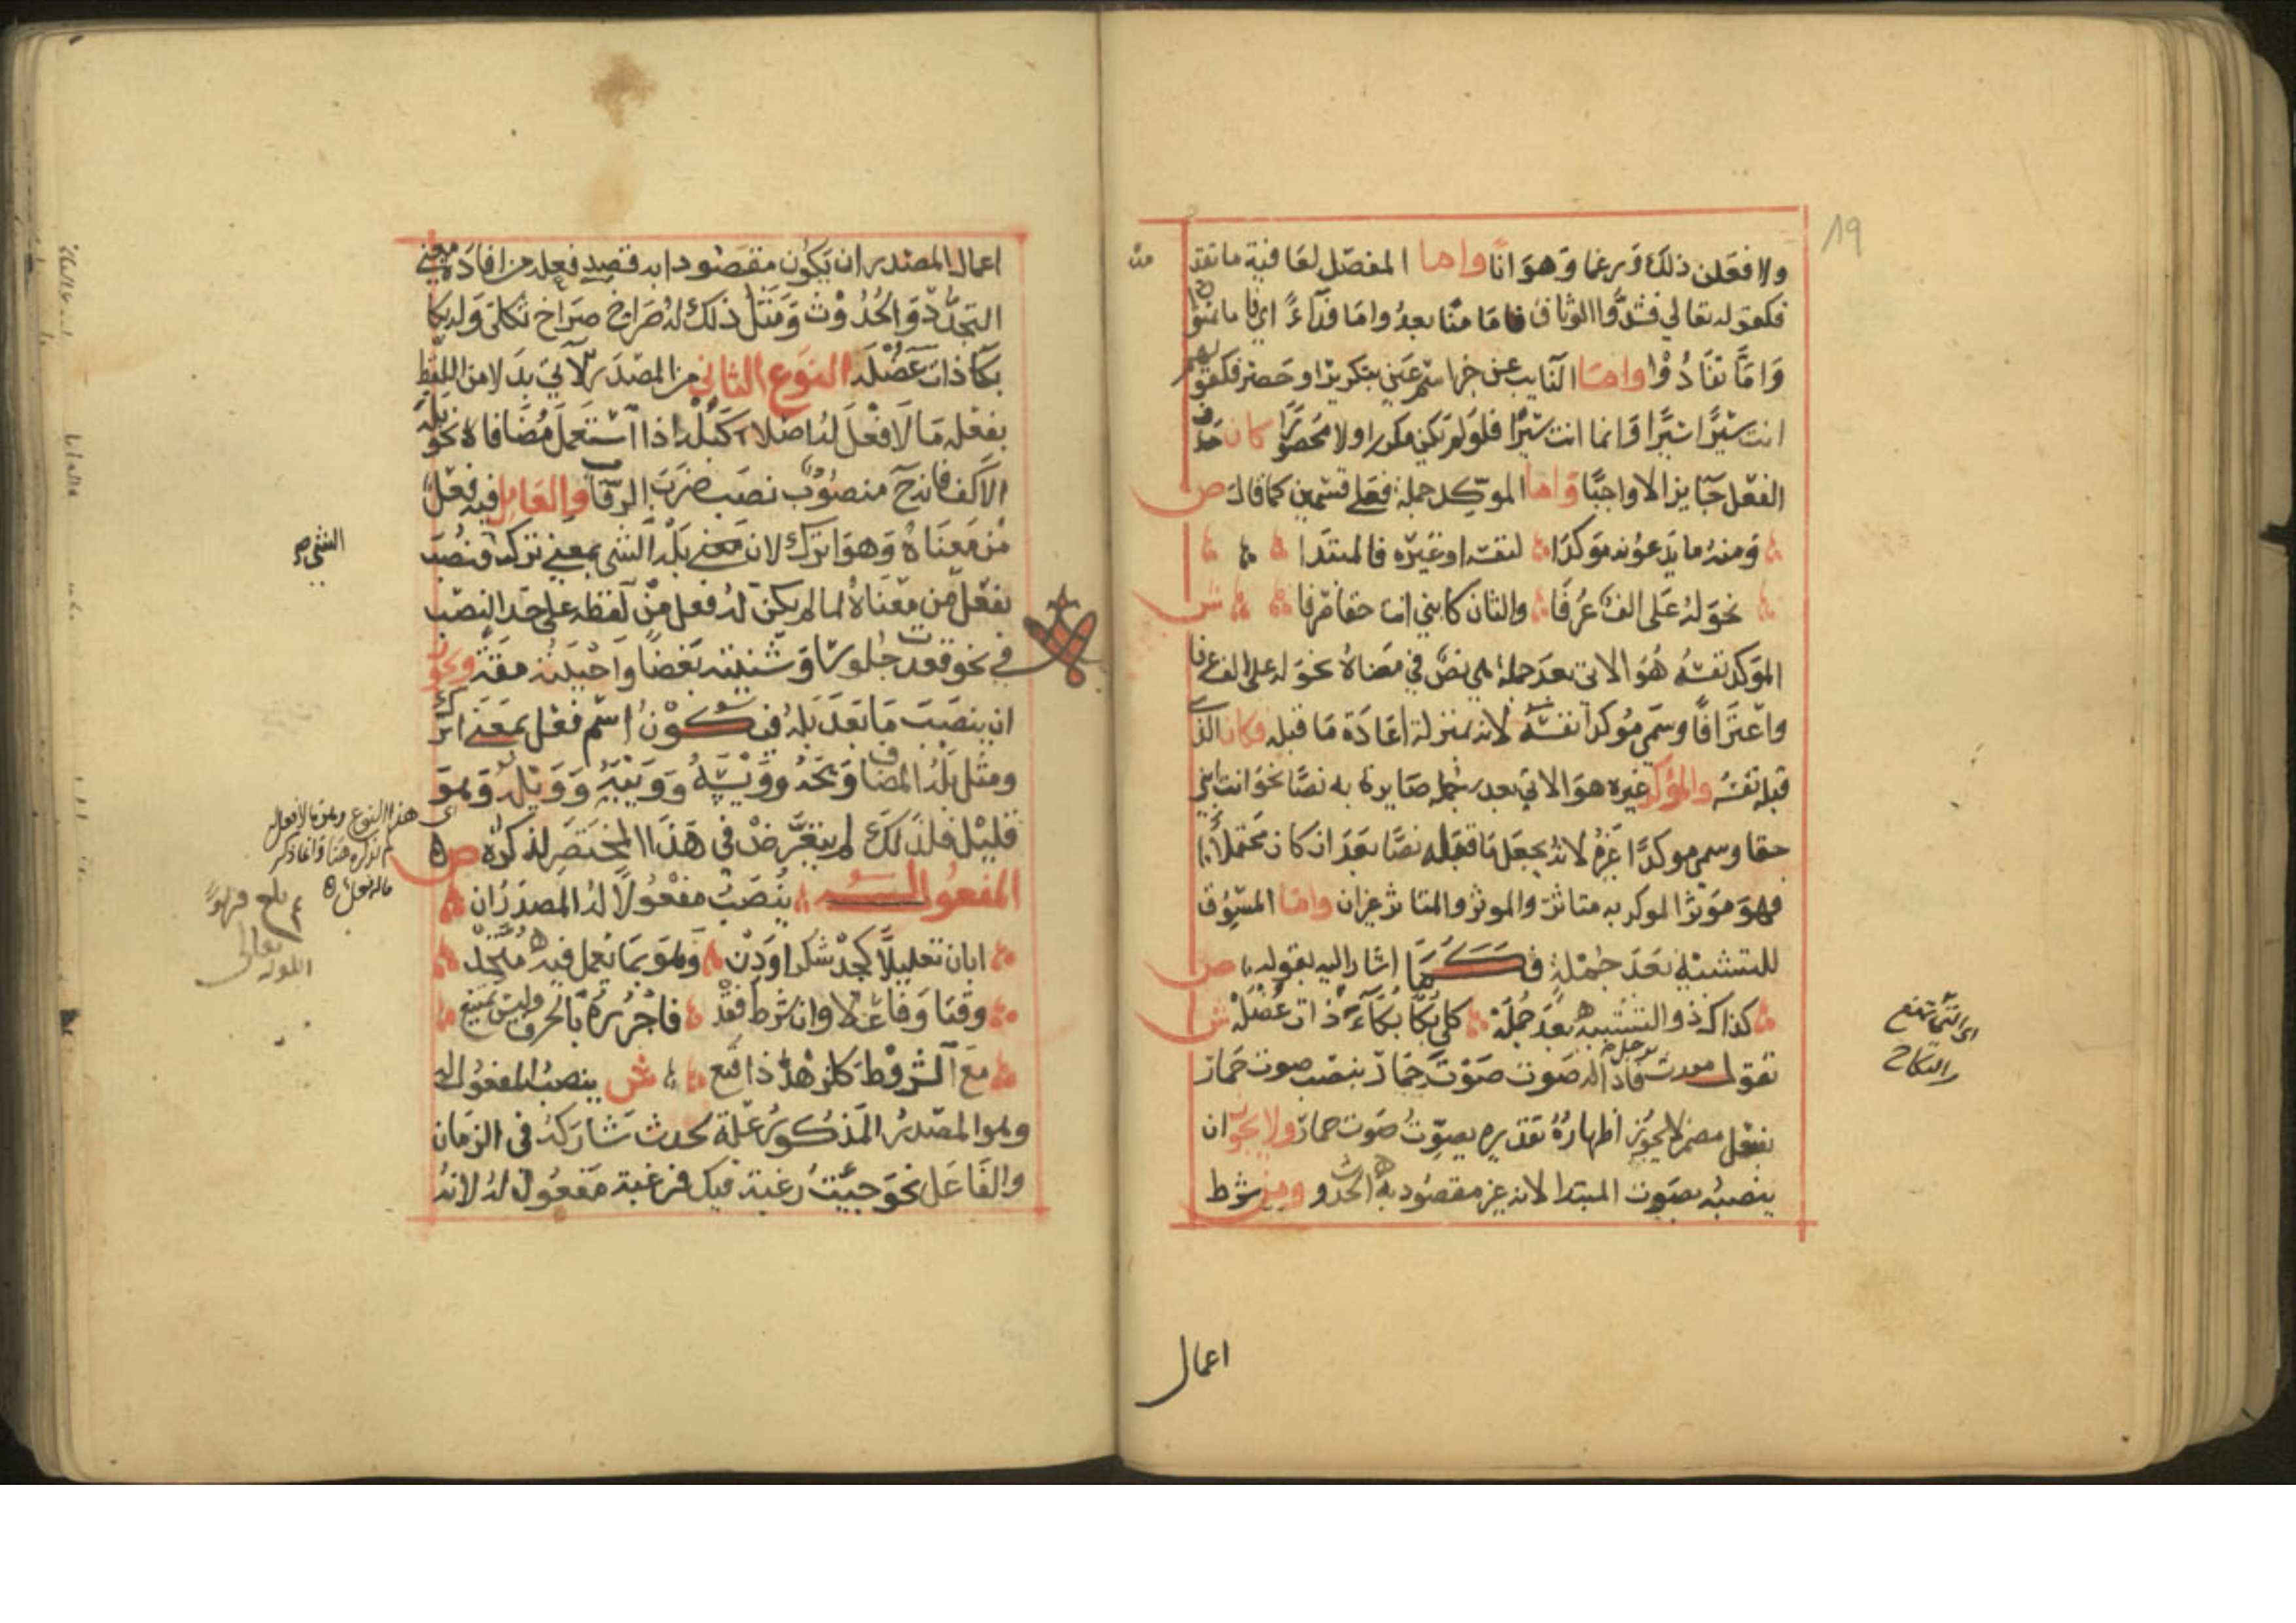 19
ولا فعلن ذلك ورغما وهوانا واما المفصل لعاقبة ما تقد
منه
فكقوله تعالى فشدوا الوثاق فاما منا بعد واما فداء اي فاما تمنوا
واما تفادوا واما النايب عن خبر اسم عين بتكرير او حصر فكقولهم
انت سيرا سيرا وانما انت سيرا فلو لم يكن مكررا ولا محصورا كان حذف
الفعل جايزا لا واجبا واما الموكد جملة فعلى قسمين كما قال ص
ومنه ما يدعونه موكدا لنفسه او غيره فالمبتدا
نحو له علي الف عرفا والثان كابني انت حقا صرفا ش
الموكد نفسه هو الاتي بعد جملة هي نص في معناه نحو له علي الف عرفا
واعترافا وسمي موكدا نفسه لانه بمنزلة اعادة ما قبله فكان الذي
قبله نفسه والمؤكد غيره هو الاتي بعد جملة صايرة به نصا نحو انت ابني
حقا وسمي موكدا غيره لانه يجعل ما قبله نصا بعد ان كان محتملا
فهو موثر الموكد به متاثر والموثر والمتاثر غيران واما المسوق
للتشبيه بعد جملة فكما اشار اليه بقوله ص
كذاك ذو التشبيه بعد جمله كلي بكا بكاء ذات عضله ش
تقول مررت برجل فاذا له صوت صوت حمار بنصب صوت حمار
بفعل مضمر لا يجوز اظهاره تقديره يصوت صوت حمار ولا يجوز ان
ينصبه بصوت المبتدا لانه غير مقصود به الحدوث ومن شرط
اي التي تمنع
النكاح
اعمال
اعمال المصدر ان يكون مقصودا به قصد فعله من افادة معنى
التجدد والحدوث ومثل ذلك له صراخ صراخ ثكلى وله بكا
بكا ذات عضله النوع الثاني من المصدر الاتي بدلا من اللفظ
بفعله ما لا فعل له اصلا كبله اذا استعمل مضافا نحو بله
الاكف فانه ح منصوب نصب ضرب الرقاب والعامل فيه فعل
من معناه وهو اترك لان معنى بله الشي بمعنى ترك فنصب
الشي صح
بفعل من معناه لما لم يكن له فعل من لفظه على حد النصب
في نحو قعدت جلوسا وشنيته بغضا واحببته مقة ويجوز
ان ينصب ما بعد بله فيكون اسم فعل بمعنى اترك
ومثل بله المضاف ويحه وويسه وويبه وويله وهو
قليل فلذلك لم يتعرض في هذا المختصر لذكره ص
اي هذا النوع وهو ما لا فعل
لم يذكره هنا وانما ذكر
ما له فعل
بلغ
الله تعالى
المفعول له ينصب مفعولا له المصدر ان
ابان تعليلا كجد شكرا ودن وهو بما يعمل فيه متحد
وقتا وفاعلا وان شرط فقد فاجرره بالحرف وليس يمتنع
مع الشروط كلزهد ذا قنع ش ينصب المفعول له
وهو المصدر المذكور علة لحدث شاركه في الزمان
والفاعل نحو جيت رغبة فيك فرغبة مفعول له لانه